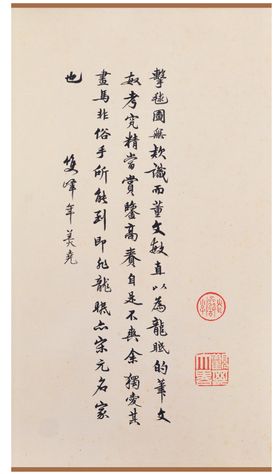 擊毬圖無款識而董文敏直以為龍眠的筆文
敏考究精當賞鑒高賽自是不與余獨愛其
畫馬非俗手所能到即非龍眠亦宋元名家
也
雙峰年羹堯